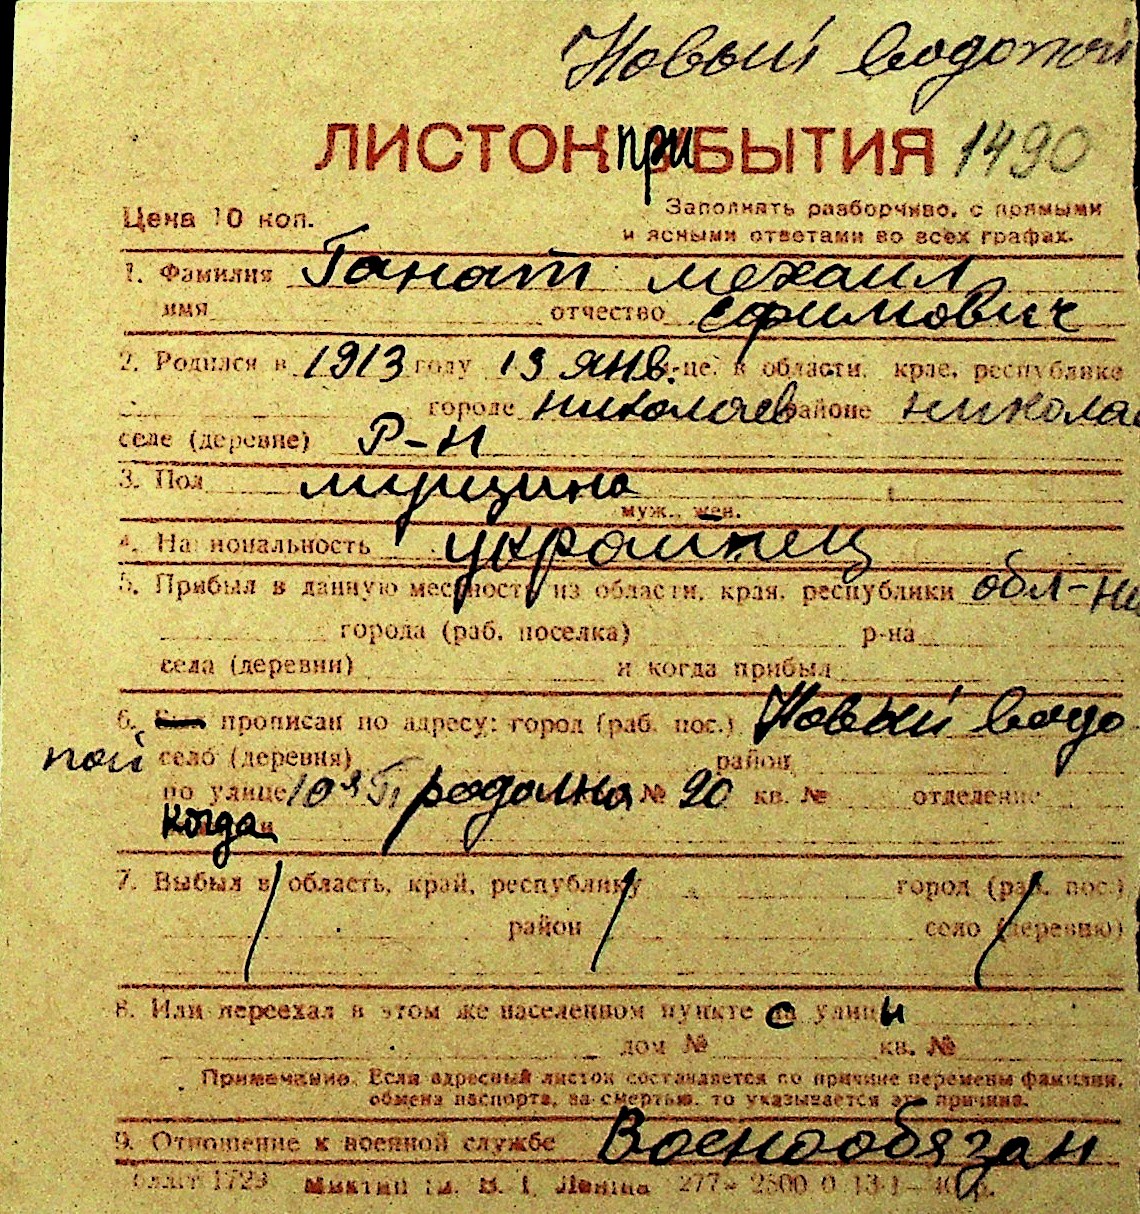 Новый водопой
ЛИСТОК ПРИБЫТИЯ 1490
Цена 10 коп.
Заполнять разборчиво, с прямыми
и ясными ответами во всех графах.
1. Фамилия Ганат Михаил
имя отчество Ефимович
2. Родился в 1913 году 13 янв. м-це, в области, крае, республике
городе Николаев районе Никола
селе (деревне) Р-Н
3. Пол мущина
муж., жен.
4. Национальность украйнец
5. Прибыл в данную местность из области, края, республики обл-Ни
города (раб. поселка) р-на
села (деревни) и когда прибыл
6. прописан по адресу: город (раб. пос.) Новый водо
пой село (деревня) район
по улице 10я Продолна № 20 кв. № отделение
когда
7. Выбыл в область, край, республику город (раб. пос.)
район село (деревню)
8. Или переехал в этом же населенном пункте с улицы
дом № кв. №
Примечание. Если адресный листок составляется по причине перемены фамилии,
обмена паспорта, за смертью, то указывается эта причина.
9. Отношение к военной службе Воєнообязан
1723 Миктип ім. В. І. Леніна 277-2500 0 13-1-40 р.